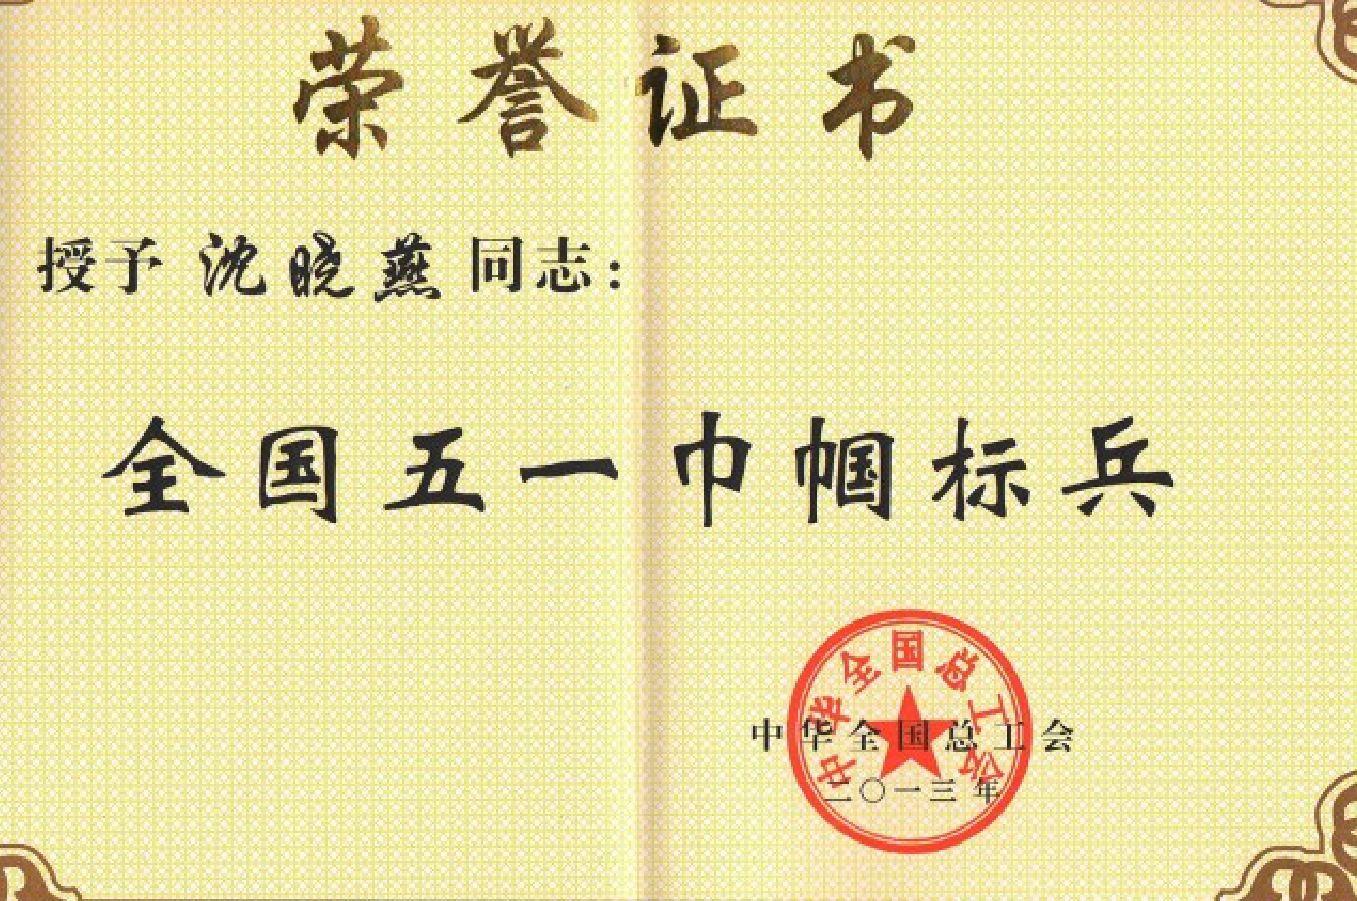 荣誉证书
授予 沈晓燕 同志：
全国五一巾帼标兵
中华全国总工会
中华全国总工会
二〇一三年